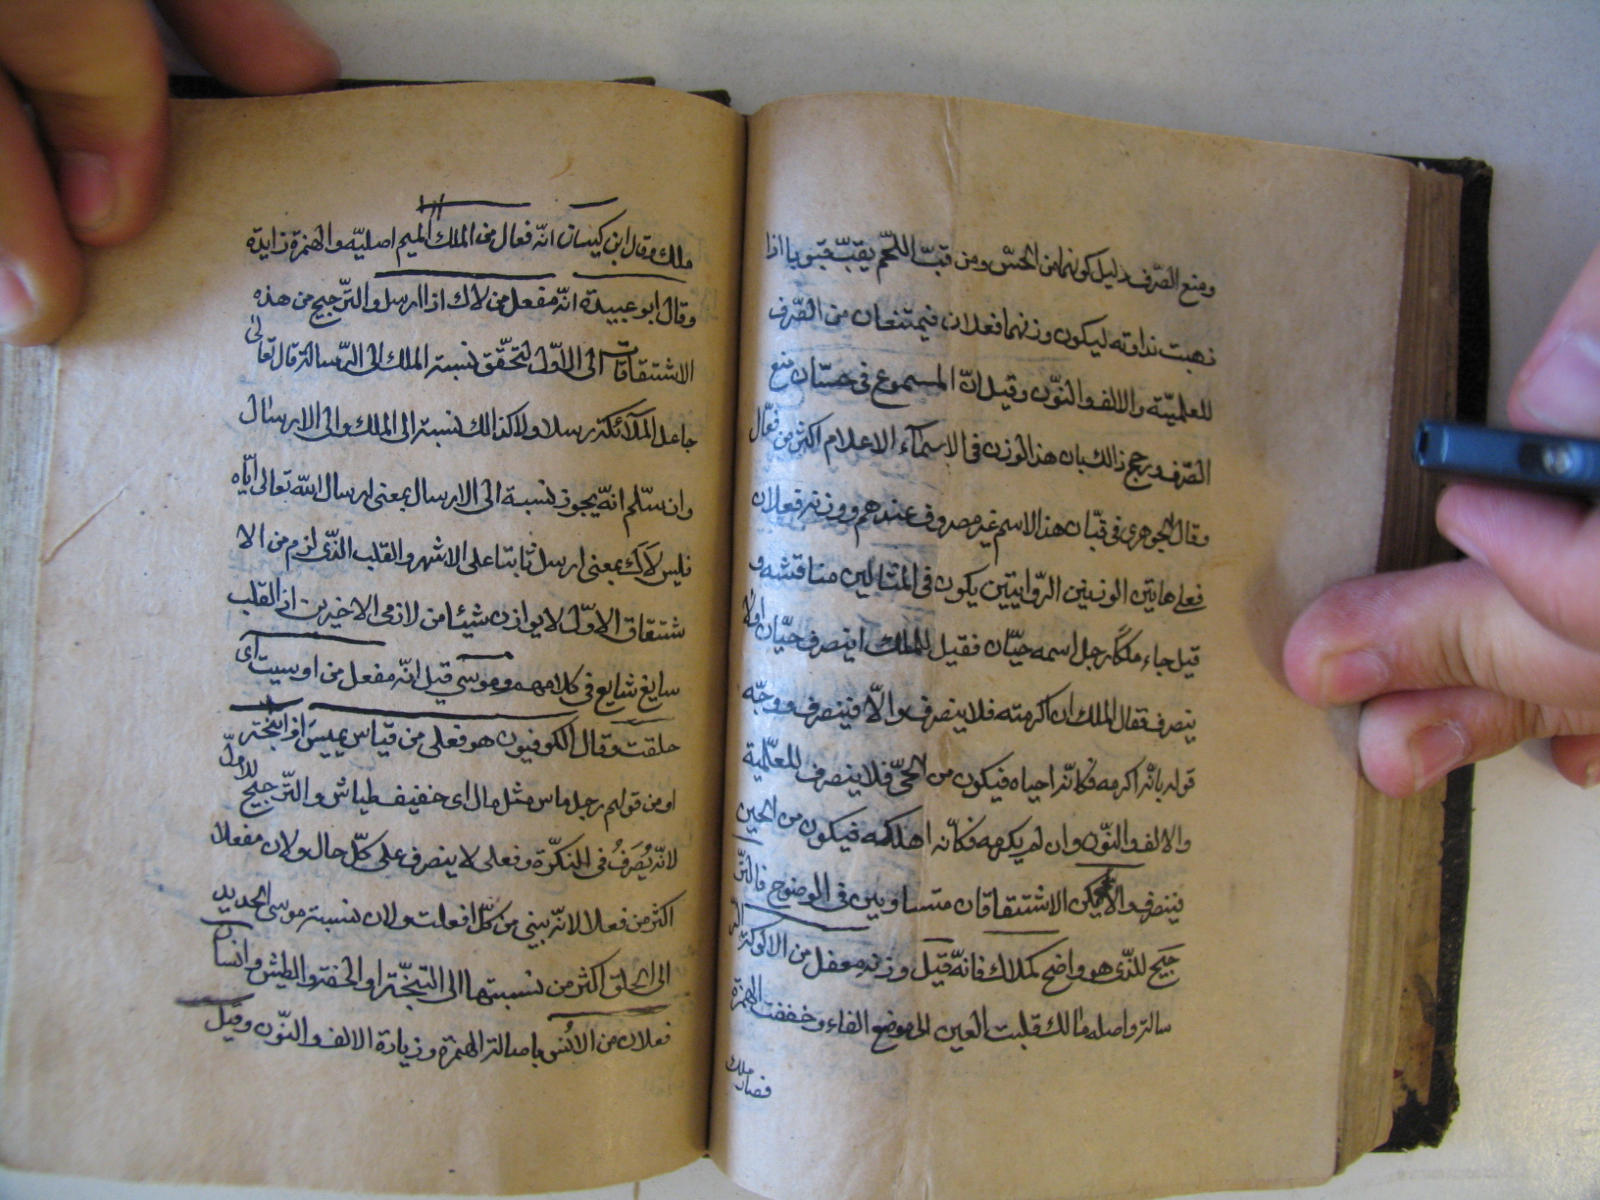 ومنع الصّرف دليل كونهما من الحسّ ومن قبّ اللحم يقبّ قبوبا اذا
ذهبت نداوته ليكون وزنهما فعلان فيمتنعان من الصّرف
للعلميّة والالف والنّون وقيل انّ المسموع في حسّان منع
الصّرف ورجح ذالك بان هذا الوزن في الاسماء الاعلام اكثر من فعّال
وقال الجوهري في قبّان هذا الاسم غير مصروف عندهم ووزنه فعلان
فعلى هاتين الروايتين يكون في المثالين مناقشة و
قيل جاء ملكا رجل اسمه حيّان فقيل للملك اينصرف حيّان او لا
ينصرف فقال الملك ان اكرمته فلا ينصرف والّا فينصرف ووجّه
قوله بانّه اكرمه فكانّه احياه فيكون من الحيّ فلا ينصرف للعلمية
والالف والنّون وان لم يكرمه فكانّه اهلكه فيكون من الحين
فينصرف والّا يكن الاشتقاقان متساويين في الوضوح فالتّر
جيح للذّي هو واضح كملاك فانه قيل وزنه معفل من الالوكة
سالة واصله مالك قلبت العين الى موضع الفاء وخففت الهمزة
فصار ملك
ملك وقال ابن كيسان انّه فعال من الملك الميم اصليّه والهمزة زايدة
وقال ابو عبيدة انّه مفعل من لاك اذا ارسل والترّجيح من هذه
الاشتقاقات الى الاوّل لتحقّق نسبة الملك الى الرّسالة قال تعالى
جاعل الملآئكة رسلا ولا كذالك نسبته الى الملك والى الارسال
وان سلّم انّه يجوز نسبة الى الارسال بمعنى ارسال الله تعالى ايّاه
فليس لَاَكَ بمعنى ارسل ثابتا على الاشهر والقلب الذّى لزم من الا
شتقاق الاوّل لا يوازن شيئا من لازمى الاخيرين اذ القلب
سايغ شايع في كلامهم وموسى قيل انّه مفعل من اوسيت اى
حلقت وقال الكوفيون هو فعلى من قياس يميس اذا تبختر
او من قولهم رجل ماس مثل مال اى خفيف طياش والترّجيح للاول
لانّه يُصَرفُ في النكرّة وفعلى لا ينصرف على كلّ حال ولان مفعلا
اكثر من فعلا لانّه يبنى من كلّ افعلت ولان نسبة موسى الحديد
الى الحلق اكثر من نسبتها الى التبختر او الخفة والطيش وانسان
فعلان من الاُنس باصالة الهمزة وزيادة الالف والنّون وقيل